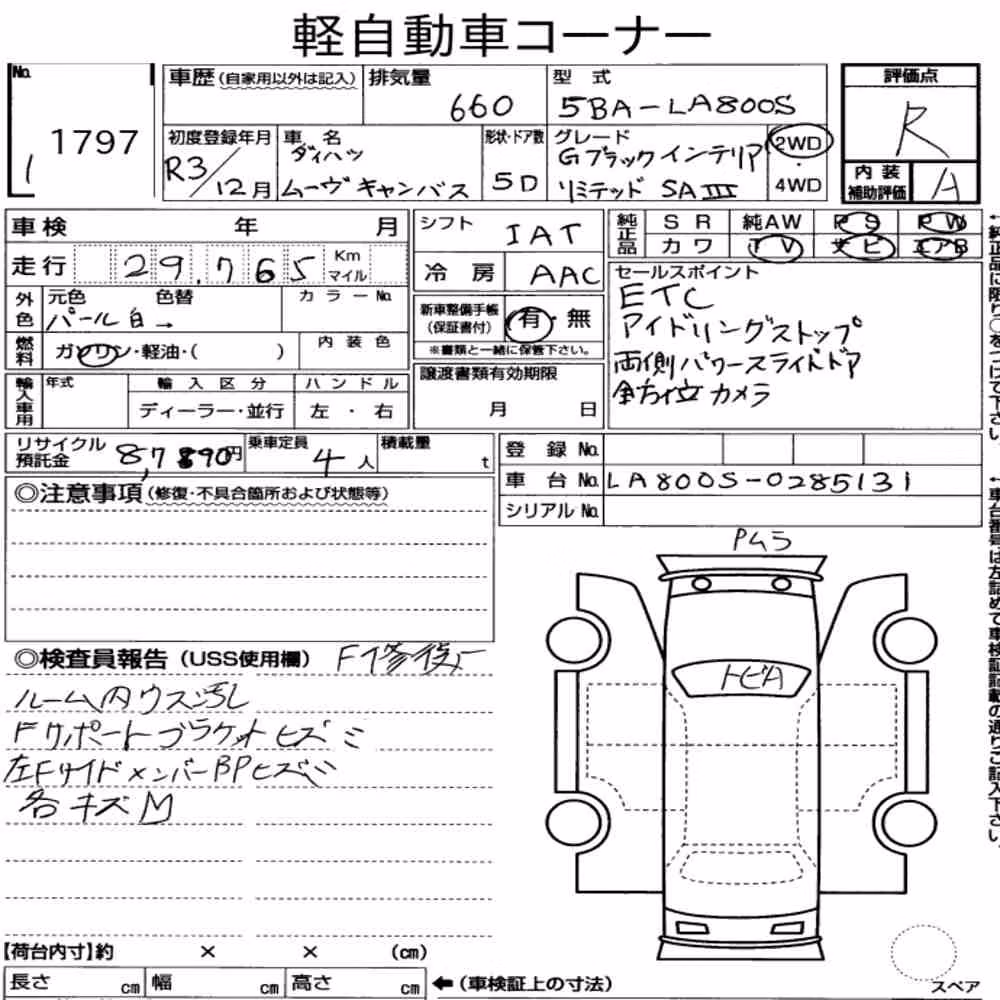 軽自動車コーナー
No. 1797
1
車歴(自家用以外は記入)
排気量 660
型式 5BA-LA800S
評価点 R
初度登録年月 R3/12月
車名 ダイハツ ムーヴキャンバス
形状・ドア数 5D
グレード Gブラックインテリア リミテッド SAⅢ
2WD・4WD
内装補助評価 A
車検 年 月
シフト IAT
純正品 SR 純AW PS PW
カワ TV ナビ エアB
走行 29,765 Km マイル
冷房 AAC
セールスポイント
ETC
アイドリングストップ
両側パワースライドドア
全方位カメラ
外色 元色 パール白 色替 → カラーNo.
新車整備手帳(保証書付) 有・無
※書類と一緒に保管下さい。
燃料 ガソリン・軽油・( ) 内装色
輸入車用 年式 輸入区分 ディーラー・並行 ハンドル 左・右
譲渡書類有効期限 月 日
リサイクル預託金 8,7890円
乗車定員 4人
積載量 t
登録No.
車台No. LA800S-0285131
シリアルNo.
◎注意事項(修復・不具合箇所および状態等)
◎検査員報告(USS使用欄) F修復
ルーム内ウス汚レ
Fサポートブラケットヒズミ
左FサイドメンバーBPヒズミ
各キズM
Pムラ
トビA
【荷台内寸】約 × × (cm)
長さ cm 幅 cm 高さ cm
←(車検証上の寸法)
スペア
←純正品に限り○をつけて下さい。
←車台番号は左詰めで車検証記載の通りご記入下さい。